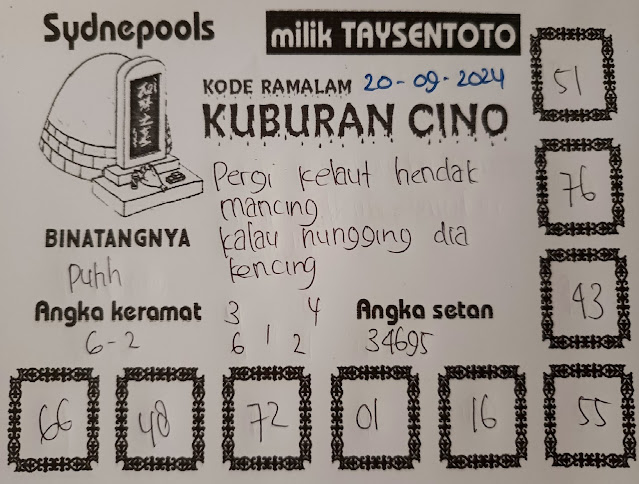 Sydnepools
milik TAYSENTOTO
KODE RAMALAM 20-09-2024
KUBURAN CINO
51
Pergi kelaut hendak
mancing
kalau nungging dia
kencing
76
BINATANGNYA
Puhh
Angka keramat
6-2
3 4
6 1 2
Angka setan
34695
43
66 48 72 01 16 55